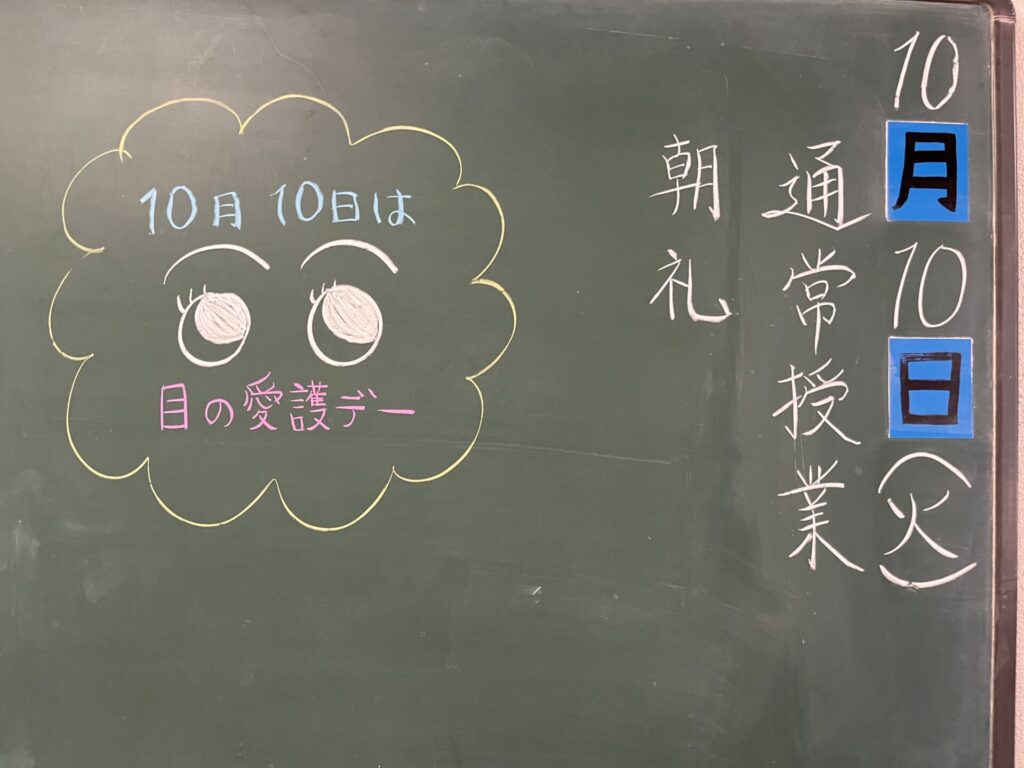 10月10日(火)
通常授業
朝礼
10月10日は
目の愛護デー